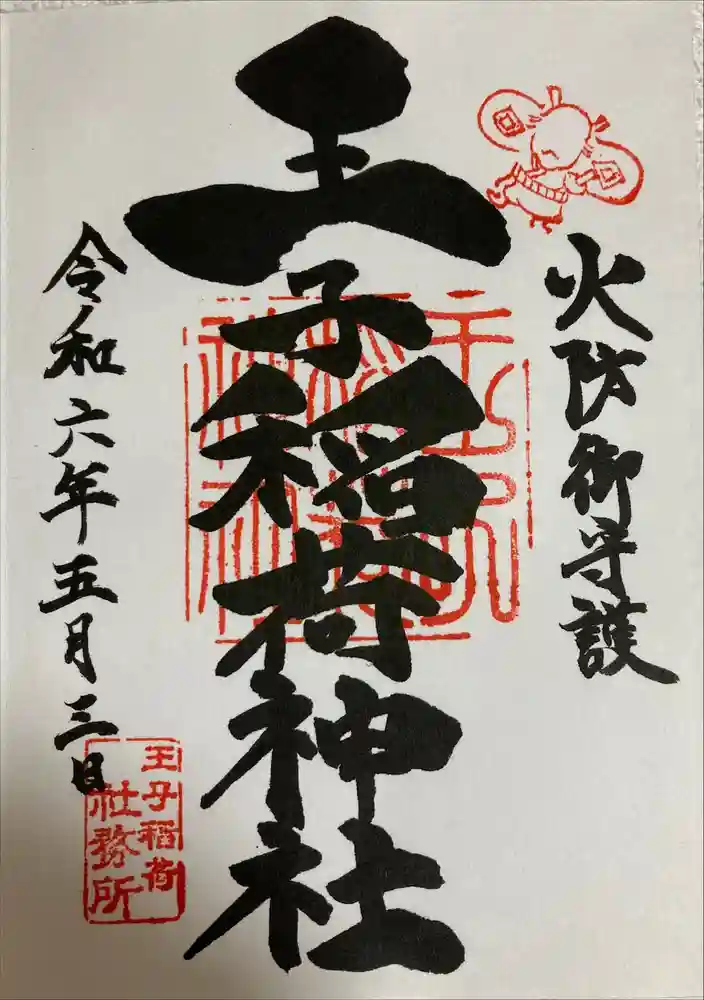 火防御守護
王子稲荷神社
令和六年五月三日
王子稲荷
社務所